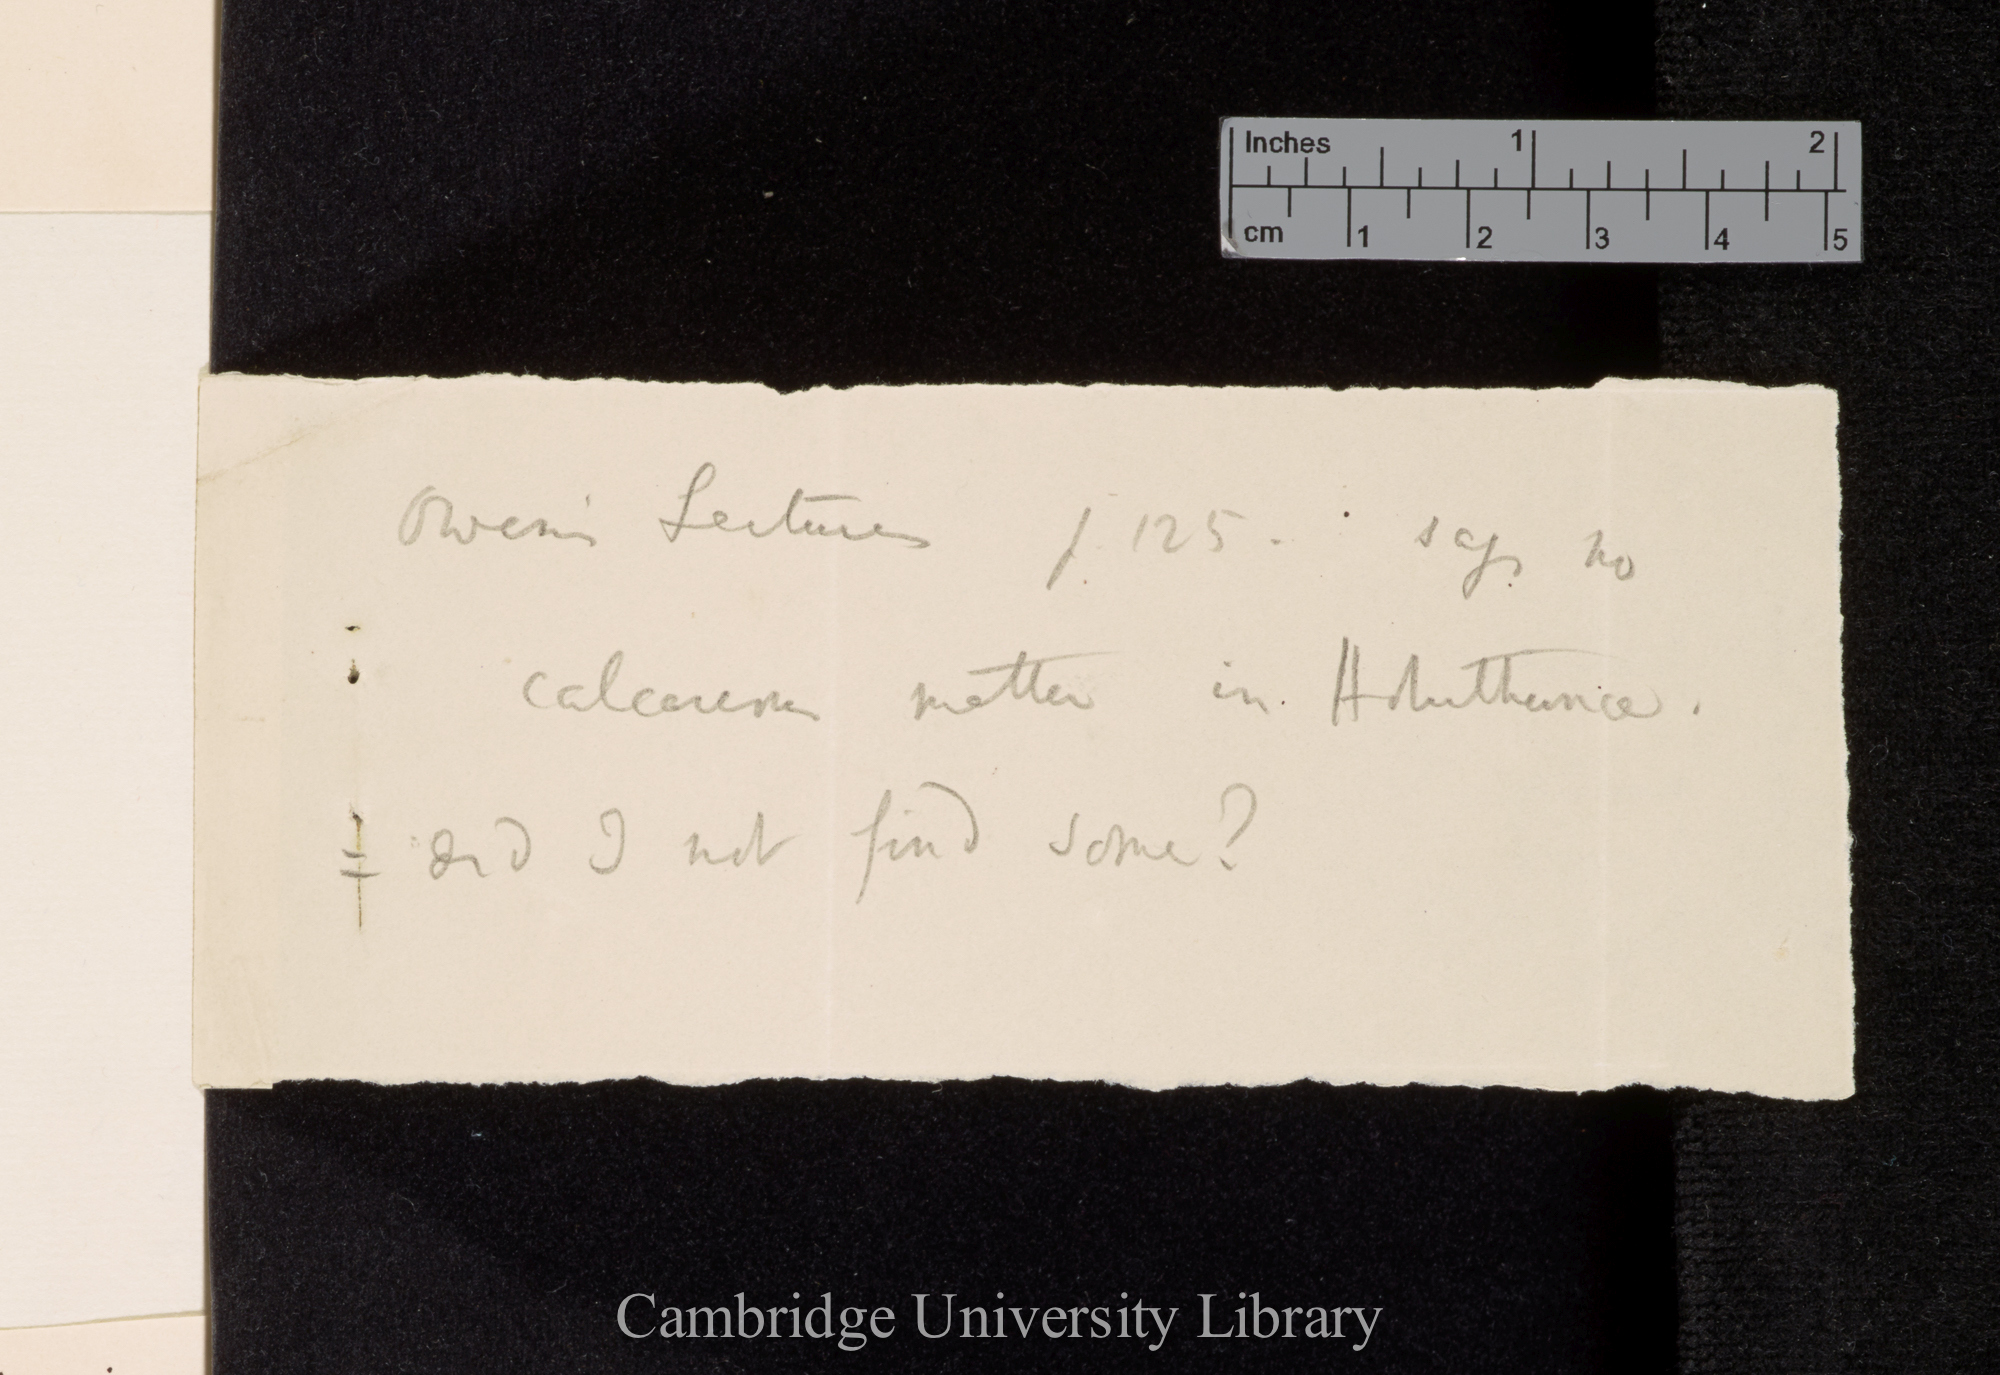 Inches 1 2
cm 1 2 3 4 5
Owen's Lectures p. 125. says no
calcareous matter in Holuthuriae.
= did I not find some?
Cambridge University Library